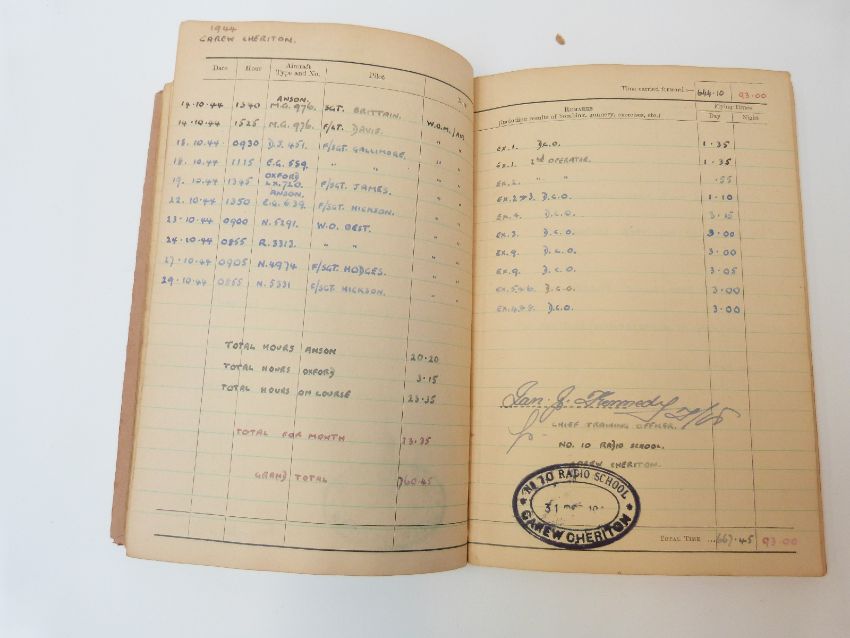 1944
CAREW CHERITON.
Date Hour Aircraft Type and No. Pilot
14.10.44 1340 ANSON. M.G. 976. SGT. BRITTAIN. W.O.M./AIR
14.10.44 1525 M.G. 976. F/LT. DAVIS. " "
18.10.44 0930 D.J. 451. F/SGT. GALLIMORE. " "
18.10.44 1115 E.G. 559. " " "
19.10.44 1345 OXFORD LX.720. F/SGT. JAMES. " "
22.10.44 1350 ANSON. E.G. 639. F/SGT. HICKSON. " "
23.10.44 0900 N.5291. W.O. BEST. " "
24.10.44 0855 R.3313. " " " "
27.10.44 0905 N.4974 F/SGT. HODGES. " "
29.10.44 0855 N.5331 F/SGT. HICKSON. " "
TOTAL HOURS ANSON 20.20
TOTAL HOURS OXFORD 3.15
TOTAL HOURS ON COURSE 23.35
TOTAL FOR MONTH 23.35
GRAND TOTAL 760.45
Time carried forward:— 644.10 93.00
REMARKS
(including results of bombing, gunnery, exercises, etc.)
Flying Times
Day Night
EX.1. D.C.O. 1.35
EX.1. 2nd OPERATOR. 1.35
EX.2. " " .55
EX.2&3. D.C.O. 1.10
EX.4. D.C.O. 3.15
EX.3. D.C.O. 3.00
EX.9. D.C.O. 3.00
EX.9. D.C.O. 3.05
EX.5&6. D.C.O. 3.00
D.C.O. 3.00
Ian J. Kennedy F/Lt
CHIEF TRAINING OFFICER.
NO. 10 RADIO SCHOOL.
CAREW CHERITON.
No 10 RADIO SCHOOL
31
CAREW CHERITON
TOTAL TIME ... 667.45 93.00